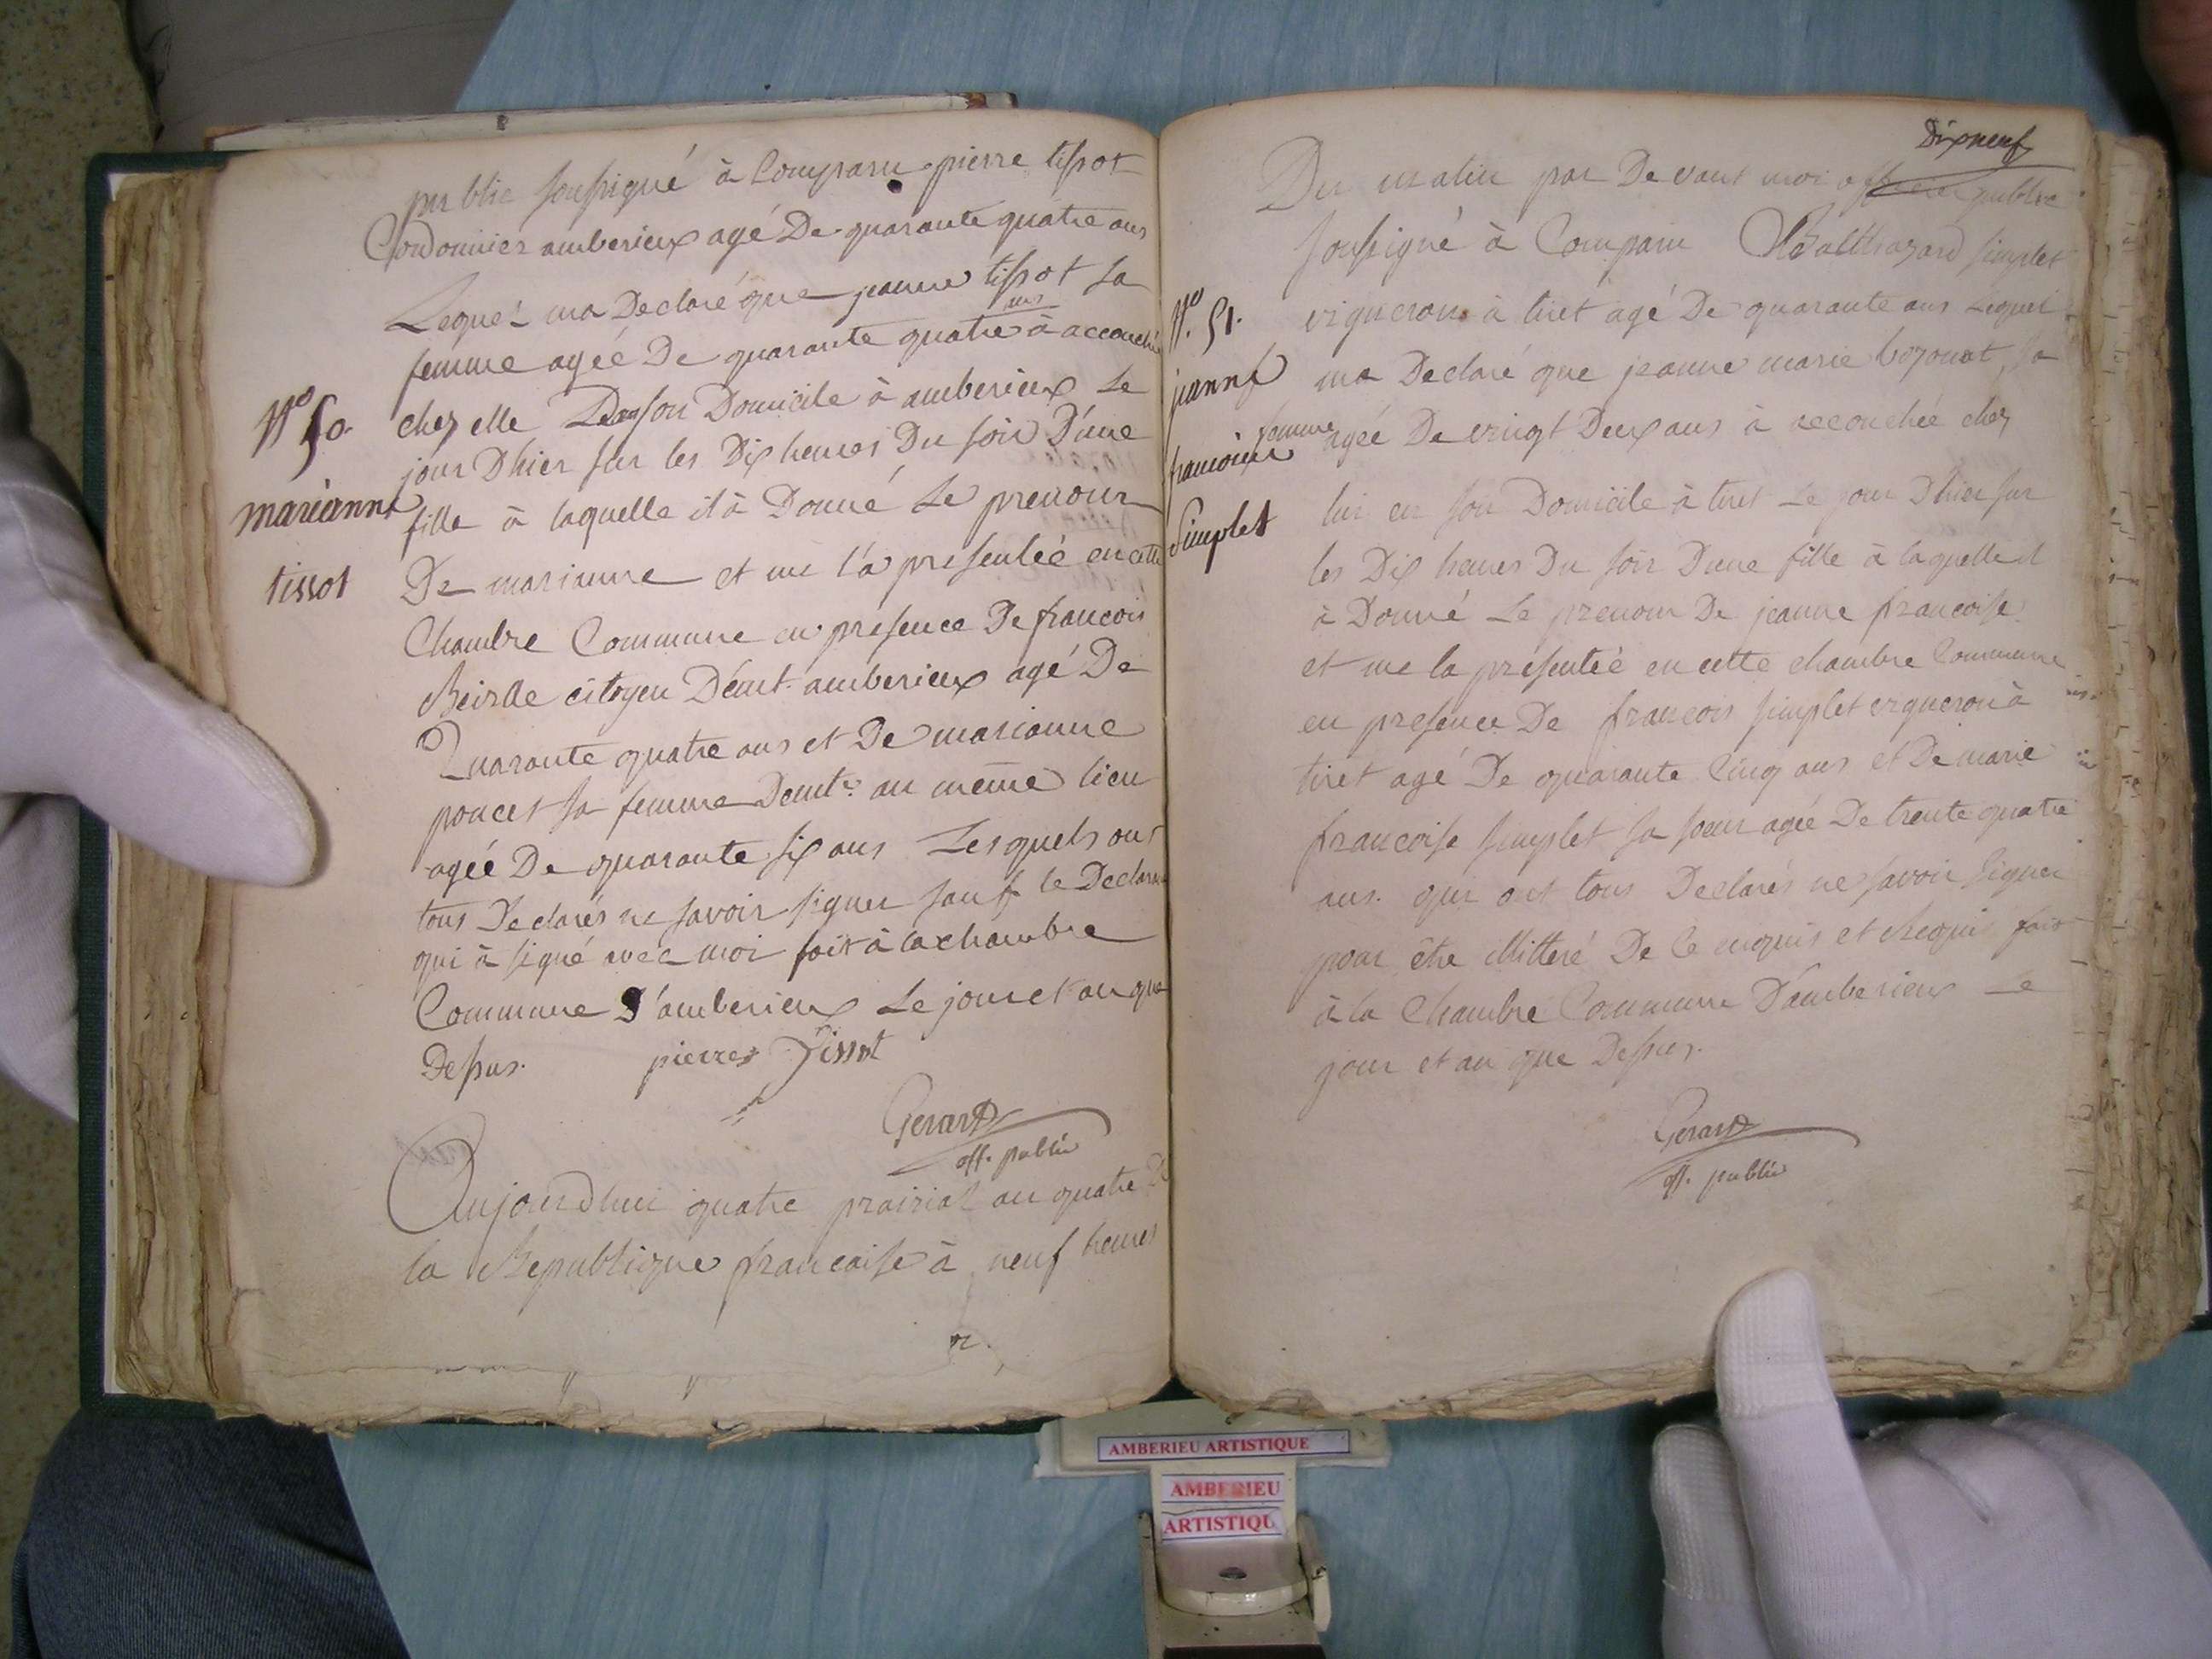 public soussigné à Comparu pierre tissot
Cordonnier amberieux agé De quarante quatre ans
Lequel ma Declaré que jeanne tissot sa
femme agéé De quarante quatre ans à accouché
N° 50.
chez elle Dans son Domicile à amberieux Le
jour D'hier sur les Dix heures Du soir D'une
marianne
fille à laquelle il à Donné Le prenom
tissot
De marianne et me l'a presentéé en cette
Chambre Commune en presence De francois
citoyen Demt. amberieux agé De
Quarante quatre ans et De marianne
poncet sa femme Demte. au même lieu
agéé De quarante six ans Lesquels ont
tous Declarés ne savoir signer sauf le Declarant
qui à signé avec moi fait à la chambre
Commune D'amberieux Le jour et an que
Dessus. pierre Tissot
Gerard
off. public
Aujourdhui quatre prairial an quatre De
la Republique francaise à neuf heures
Dix neuf
Du matin par Devant moi officier public
soussigné à Comparu Balthazard simplet
N° 51.
vigneron à tiret agé De quarante ans Lequel
jeanne
ma Declaré que jeanne marie bozonat, sa
francoise
femme agéé De vingt Deux ans à accouchéé chez
Simplet
lui en son Domicile à tiret Le jour D'hier sur
les Dix heures Du soir D'une fille à laquelle il
à Donné Le prenom De jeanne francoise
et me la presentéé en cette chambre Commune
en presence De francois simplet vigneron à
tiret agé De quarante Cinq ans et De marie
francoise simplet sa soeur agéé De trente quatre
ans. qui ont tous Declarés ne savoir signer
pour être illitteré De ce enquis et Requis fait
à la Chambre Commune D'amberieux Le
jour et an que Dessus.
Gerard
off. public
AMBERIEU ARTISTIQUE
AMBERIEU
ARTISTIQU